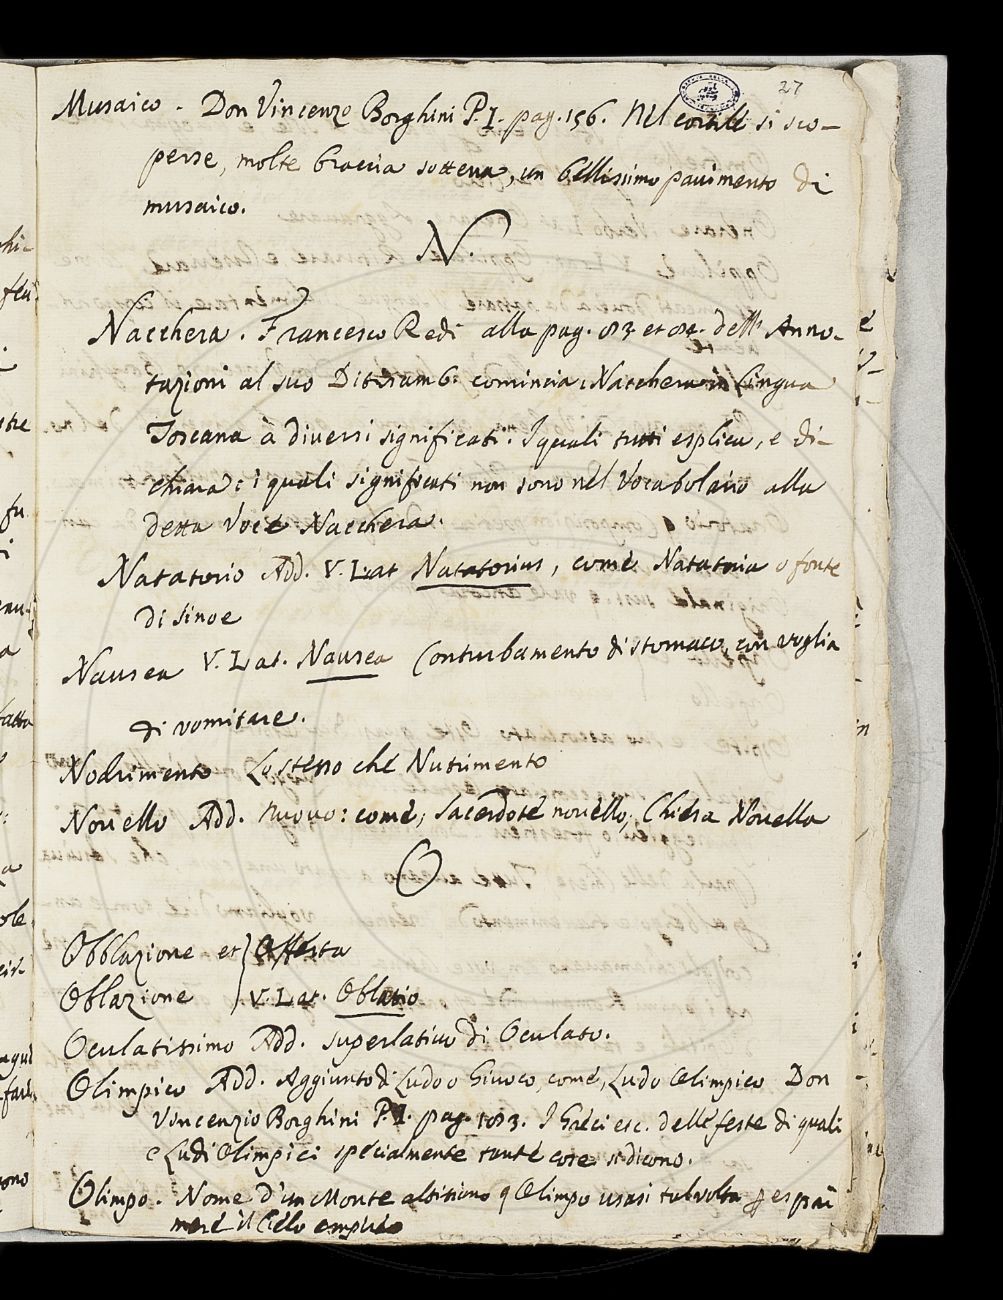 27
Musaico - Don Vincenzo Borghini P. I. pag. 156. Nel cortile si sco-
perse, molte braccia sotterra, un bellissimo pavimento di
musaico.
N.
Nacchera. Francesco Redi alla pag. et dell' Anno-
tazioni al suo Ditiramb: comincia: Nacchera in Lingua
Toscana à diversi significati. I quali tutti esplica, e di-
chiara: i quali significati non sono nel Vocabolario alla
detta Voce Nacchera.
Natatorio Add. V. Lat Natatorius, come Natatoria o fonte
di siloe
Nausea V. Lat. Nausea Conturbamento di stomaco, con voglia
di vomitare.
Nodrimento Lo stesso che Nutrimento
Novello Add. Nuovo: come, Sacerdote novello, Chiesa Novella
O
Obblazione et } Offerta
Oblazione } V. Lat. Oblatio
Oculatissimo Add. superlativo di Oculato.
Olimpico Add. Aggiunto di Ludo o Giuoco, come, Ludo Olimpico Don
Vincenzio Borghini P. I. pag. I Greci esc. delle feste di quali
e Ludi Olimpici specialmente tante cose si dicono.
Olimpo. Nome d'un Monte altissimo e Olimpo usasi talvolta p espri
mere il Cielo empireo